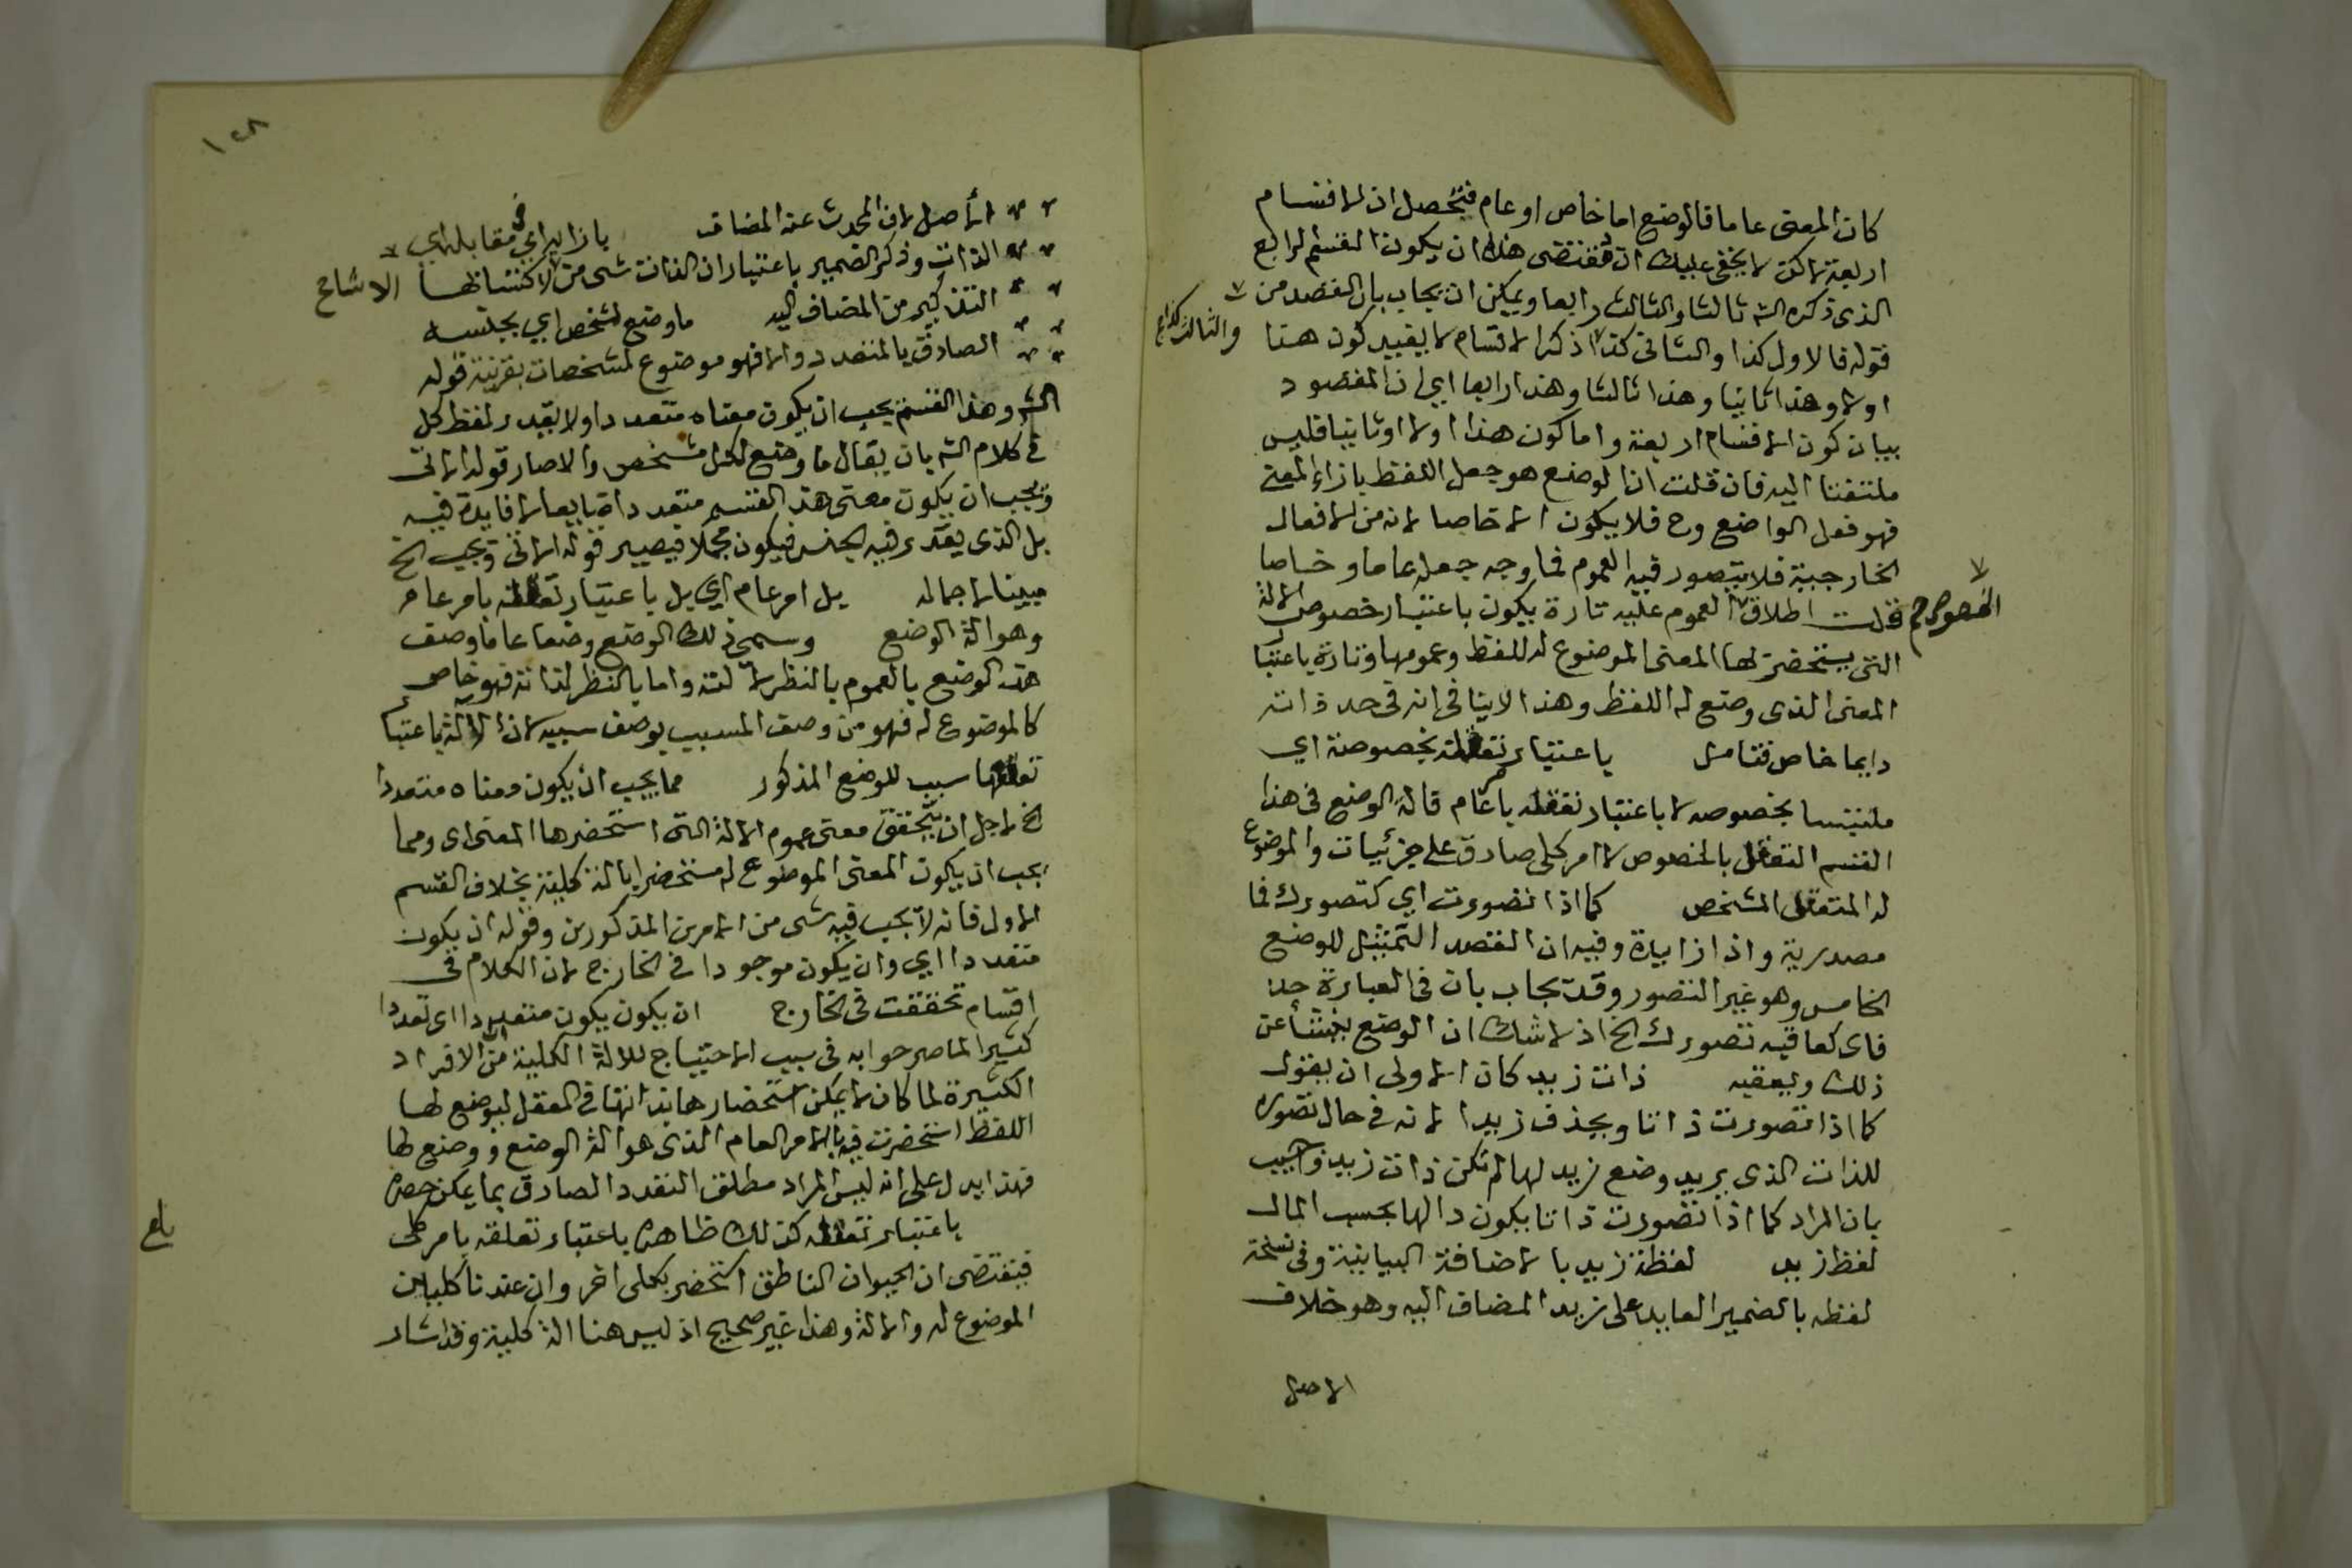 كان المعنى عاما فالوضع اما خاص او عام فتحصل ان الاقسام
اربعة لكن لا يخفى عليك ان مقتضى هذا ان يكون القسم الرابع
الذى ذكره الشه ثالثا والثالث رابعا ويمكن ان يجاب بان القصد من
قوله فالاول كذا والثانى كذا اذ ذكر الاقسام لا بقيد كون هذا
والثالث كذا
اولا وهذا ثانيا وهذا ثالثا وهذا رابعا اي اذ المقصود
بيان كون الاقسام اربعة واما كون هذا اولا او ثانيا فليس
ملتفتا اليه فان قلت ان الوضع هو جعل اللفظ بازاء المعنى
فهو فعل الواضع وح فلا يكون الا خاصا لانه من الافعال
الخارجية فلا يتصور فيه العموم فما وجه جعله عاما وخاصا
قلت اطلاق العموم عليه تارة يكون باعتبار خصوص الالة
الخصوص
التى يستحضر بها المعنى الموضوع له اللفظ وعمومها وتارة باعتبا
المعنى الذى وضع له اللفظ وهذا لا ينافى انه فى حد ذاته
دايما خاص فتامل باعتبار تعقله بخصوصه اي
ملتبسا بخصوصه لا باعتبار تعقله بامر عام فالة الوضع فى هذا
القسم التعقل بالخصوص لا امر كلى صادق على جزئيات والموضوع
له المتعقل المشخص كما اذا تصورت اي كتصورك فما
مصدرية واذا زايدة وفيه ان القصد التمثيل للوضع
الخاص وهو غير التصور وقد يجاب بان فى العبارة حذ
فاى كما فيه تصورك الخ اذ لا شك ان الوضع ينشأ عن
ذلك ويعقبه ذات زيد كان الاولى ان يقول
كما اذا تصورت ذاتا ويحذف زيدا لانه فى حال تصوره
للذات الذى يريد وضع زيد لها لم تكن ذات زيد واجيب
بان المراد كما اذا تصورت ذاتا يكون دالها بحسب المال
لفظ زيد لفظة زيد بالاضافة البيانية وفى نسخة
لفظه بالضمير العايد على زيد المضاف اليه وهو خلاف
الاصل
١٥٨
الأصل لان المحدث عنه المضاف بازايه اي فى مقابلة اي
الذات وذكر الضمير باعتبار ان الذات شى من الاكتسابها الاشاح
التذكير من المضاف اليه ما وضع لشخص اي بجنسه
الصادق بالمتعدد والا فهو موضوع لمشخصات بقرينة قوله
الشه وهذا القسم يجب ان يكون معناه متعددا ولا يقدر لفظ كل
فى كلام الشه بان يقال ما وضع لكل مشخص والا صار قوله الاتى
ويجب ان يكون معنى هذا القسم متعددا ضايعا لا فايدة فيه
بل الذى يقدر فيه الجنس فيكون مجملا فيصير قوله الاتى ويجب الخ
مبينا لاجماله بل امر عام اي بل باعتبار تعقله بامر عام
وهو الة الوضع وسمى ذلك الوضع وضعا عاما وصف
هذا الوضع بالعموم بالنظر لالته واما بالنظر لذاته فهو خاص
كالموضوع له فهو من وصف المسبب بوصف سببه لان الالة باعتبا
تعقلها سبب للوضع المذكور مما يجب ان يكون معناه متعددا
الخ لاجل ان يتحقق معنى عموم الالة التى استحضر بها المعنى اى ومما
يجب ان يكون المعنى الموضوع له مستحضرا بالة كلية بخلاف القسم
الاول فانه لا يجب فيه شى من الامرين المذكورين وقوله ان يكون
متعددا اي وان يكون موجودا فى الخارج لان الكلام فى
اقسام تحققت فى الخارج ان يكون يكون متعددا اى تعددا
كثيرا لما صرحوا به فى سبب الاحتياج للالة الكلية من ان الافراد
الكثيرة لما كان لا يمكن استحضارها بذاتها فى العقل ليوضع لها
اللفظ استحضرت فيه بالامر العام الذى هو الة الوضع ووضع لها
فهذا يدل على انه ليس المراد مطلق التعدد الصادق بما يمكن حصره
باعتبار تعقله كذلك ظاهره باعتبار تعلقه بامر كلى
بلغ
فيقتضى ان الحيوان الناطق استحضر بكلى اخر وان عندنا كليان
الموضوع له والالة وهذا غير صحيح اذ ليس هنا الة كلية وقد اشار